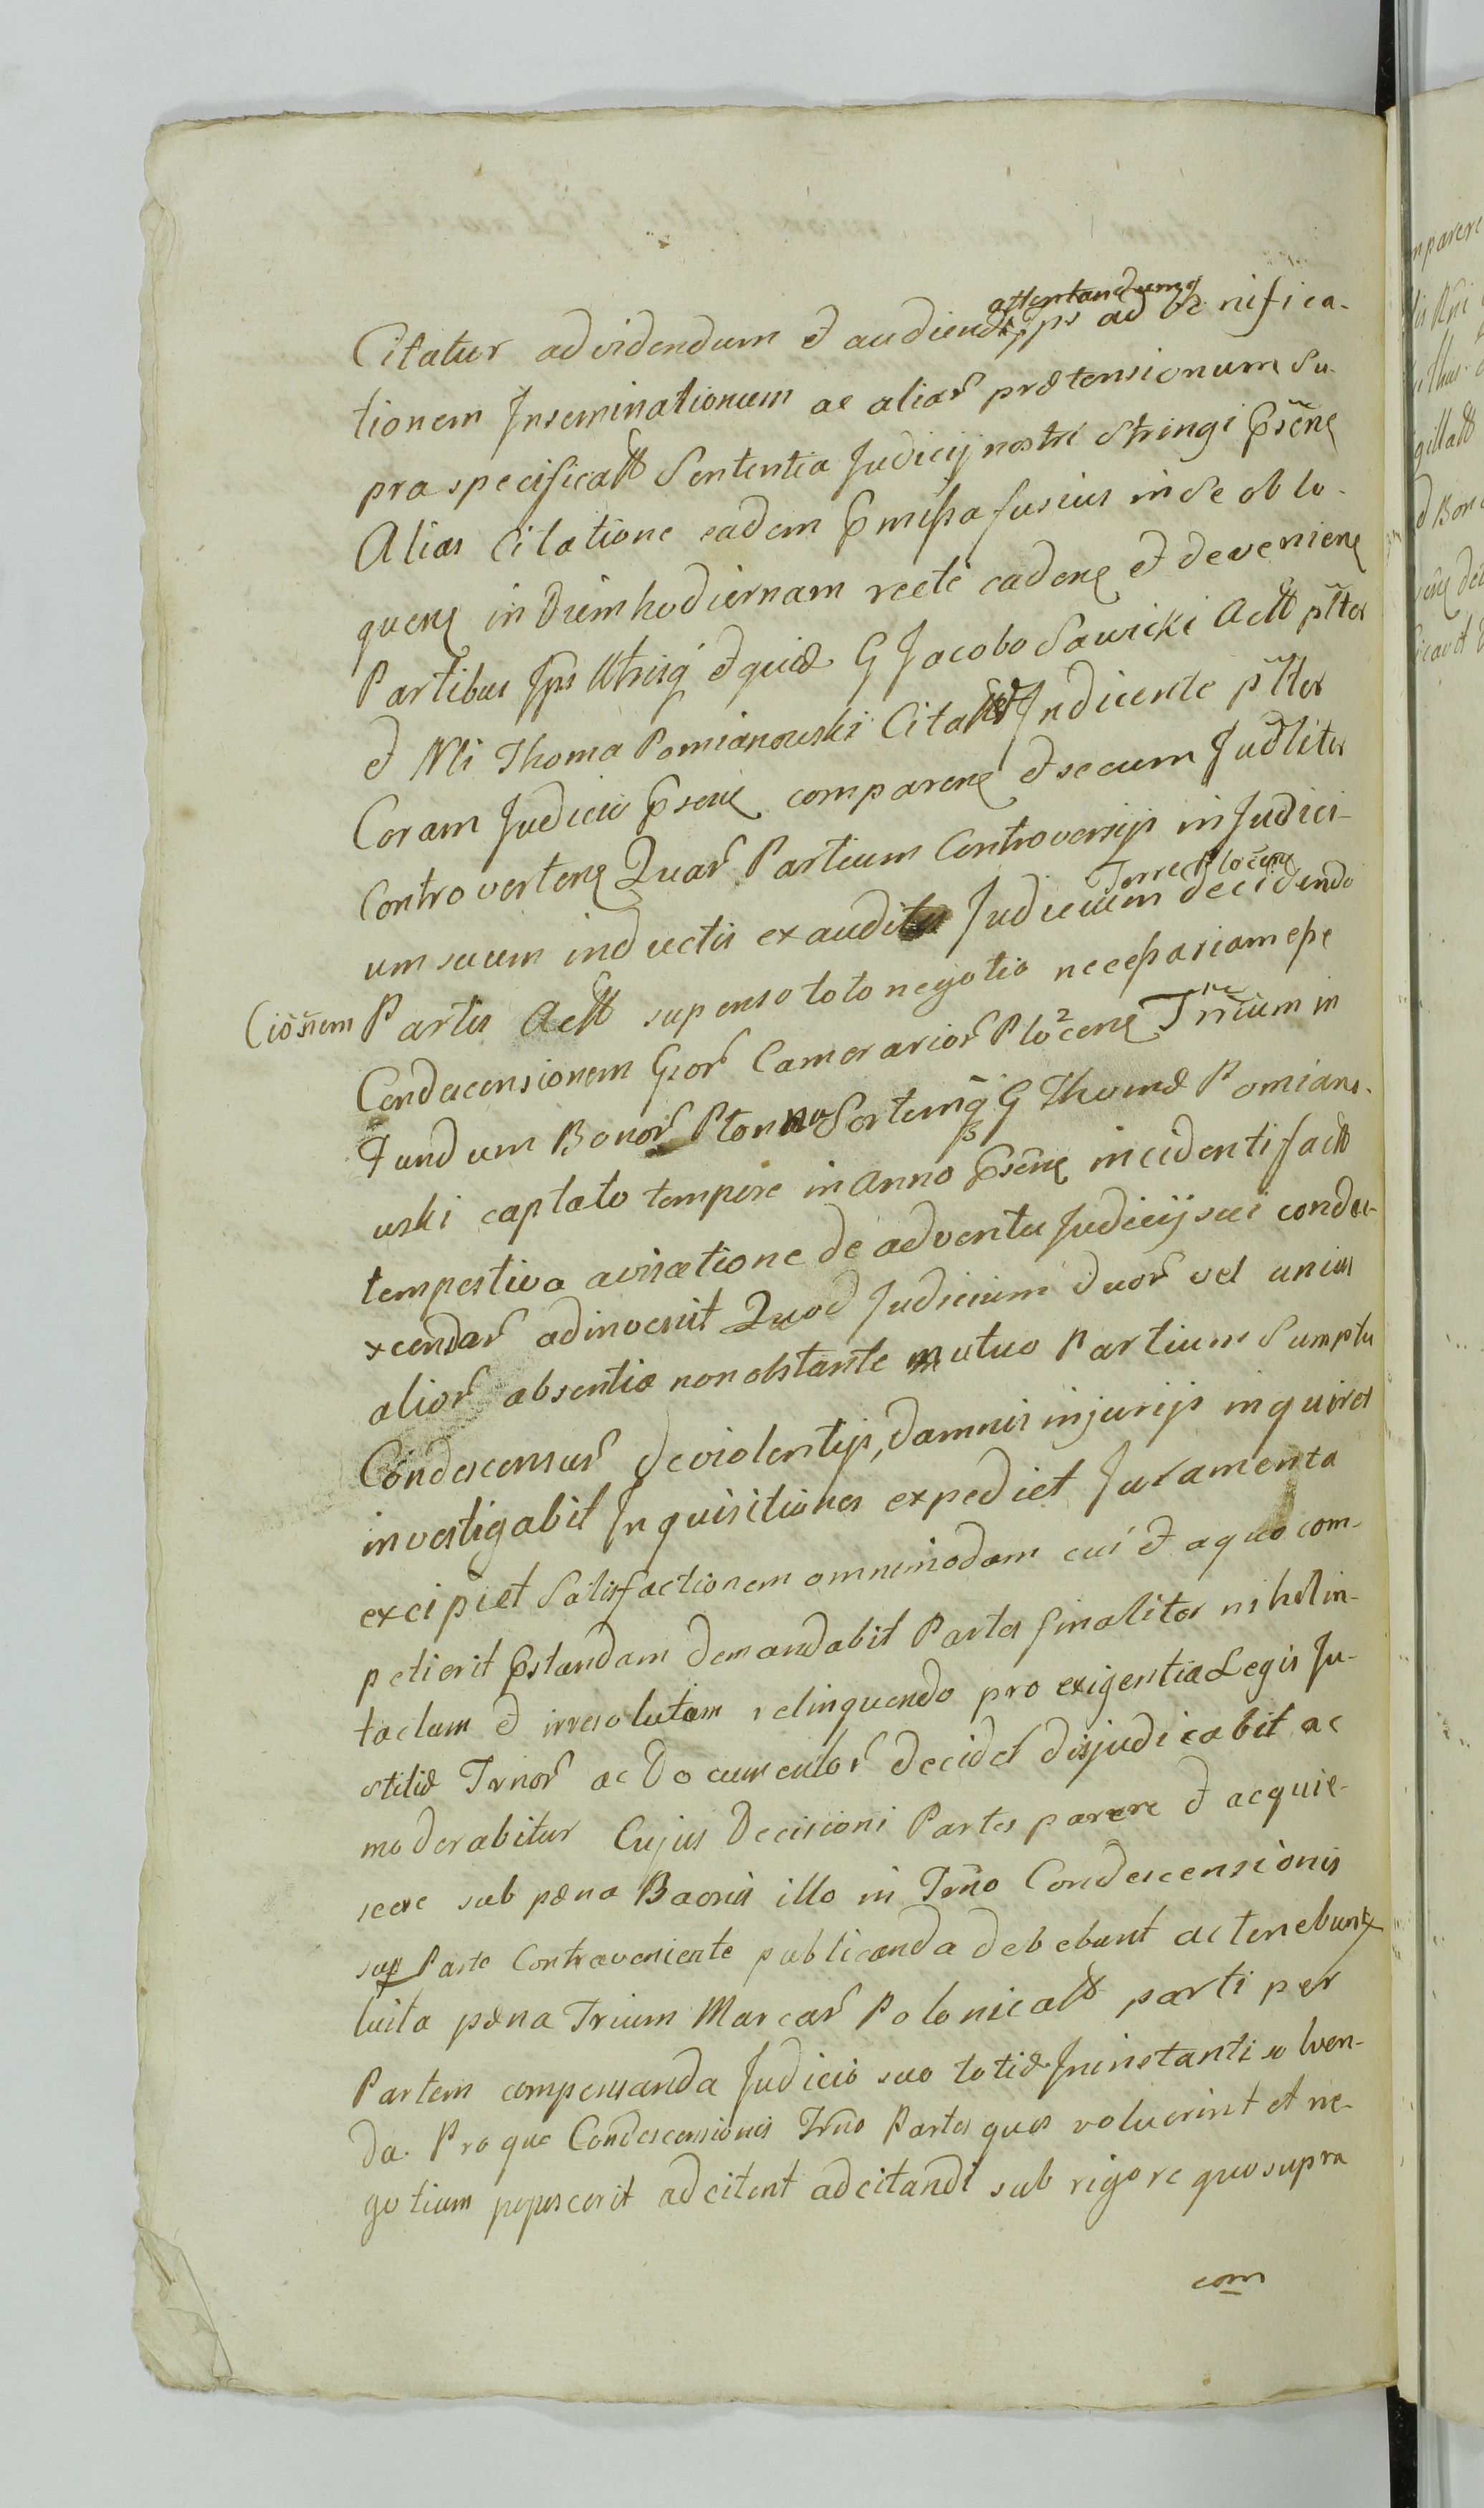 attentandumq
Citatur ad videndum et audiend ips ad bonifica-
tionem Inseminationum ac aliar prætensionum su-
pra specificatt Sententia Judicij nostri Stringi Prsñe
Alias Citatione eadem Præmissa fusius in se oblo-
quen in Diem hodiernam recte caden et devenien
Partibus Ips Utrisq et quid G Jacobo Sawicki Actt plter
et Nli Thoma Pomianowski Citatt Indicente pltes
Coram Judicio Prsen comparen et secum Judlites
Controverten Quar Partium Controversijs in Judici-
Terre Plocen
um suum inductis exauditis Judicium decidendo
Cioñem Partis Actt supenso toto negotio necessariam esse
Condescensionem Gror Camerarior Plocen Trium in
Fundum Bonor Plonno Sortemq G Thomæ Pomiano-
wski captato tempore in Anno Prsen incidenti fact
tempestiva avisatione de adventu Judicij sui condes-
cendar adinvenit Quod Judicium duor vel unius
alior absentia non obstante mutuo Partium Sumptu
Condescensur de violentijs, damnis injurijs inquiret
investigabit Inquisitiones expediet Juramenta
excipiet Satisfactionem omnimodam cui et a quo com-
petierit Prstandam demandabit Partes finaliter nihil in-
tactum et irresolutam relinquendo pro exigentia Legis Ju-
stitiæ Trnor ac Documentor decidet disjudicabit ac
moderabitur Cujus Decisioni Partes parere et acquie-
scere sub pæna Baonis illo in Trño Condescensionis
sup Parte Contraveniente publicanda debebunt ac tenebunt
luita pæna Trium Marcar Polonicatt parti per
Partem compensanda Judicio suo totid Ininstanti solven-
da. Proque Condescensionis Trño Partes quos voluerint et ne-
gotium poposcerit adcitent adcitandi sub rigore quo supra
com